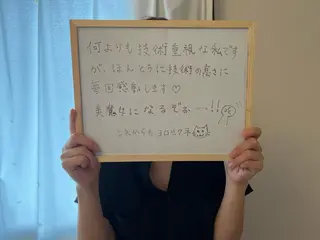 何よりも技術重視な私です
が、ほんとうに技術の高さに
毎回感動します♡
美魔女になるぞぉー!!
これからもヨロシク